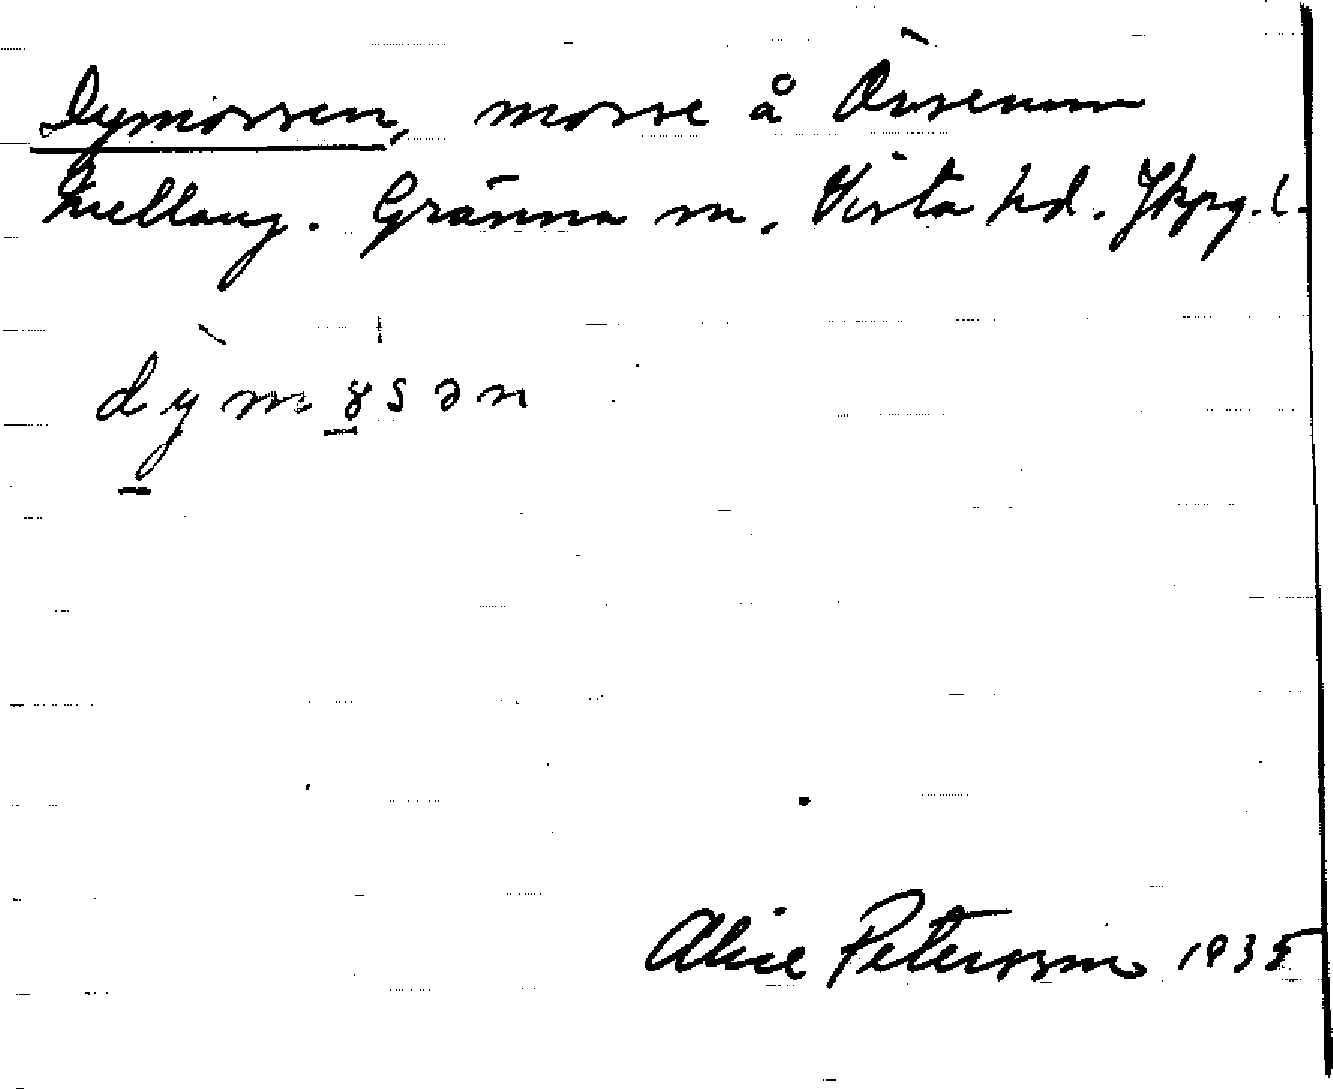 Dymossen, mosse å Örserum
Mellang. Gränna sn, Vista hd. Jkpg. l.
dỳmɤsən
Alice Petersson 1935